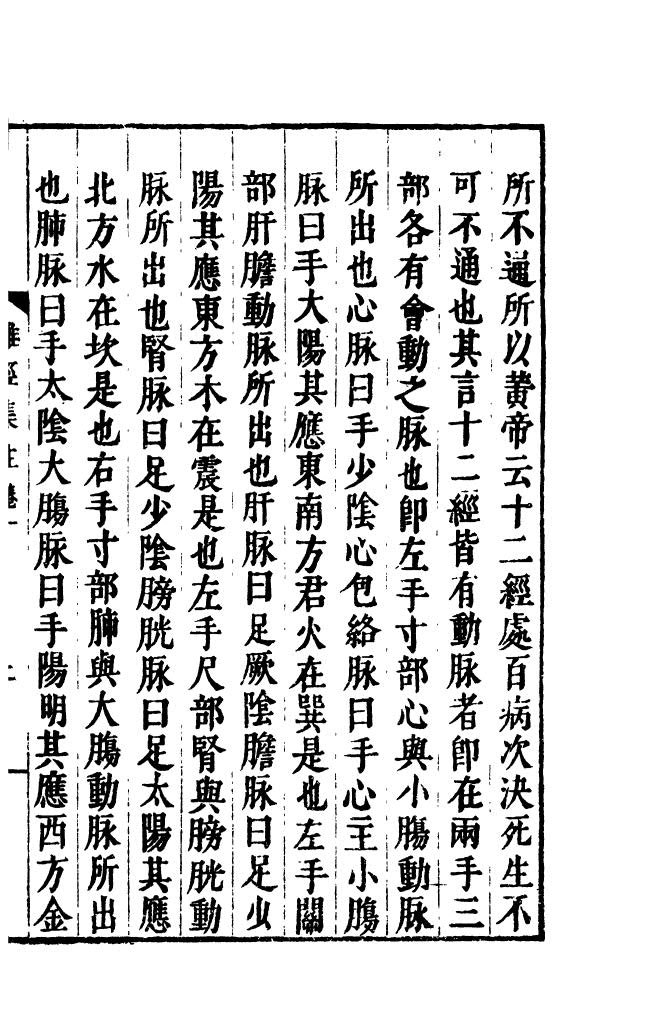 所不通所以黄帝云十二經處百病次決死生不
可不通也其言十二經皆有動脉者即在兩手三
部各有會動之脉也即左手寸部心與小腸動脉
所出也心脉曰手少陰心包絡脉曰手心主小腸
脉曰手大陽其應東南方君火在巽是也左手關
部肝膽動脉所出也肝脉曰足厥陰膽脉曰足少
陽其應東方木在震是也左手尺部腎與膀胱動
脉所出也腎脉曰足少陰膀胱脉曰足太陽其應
北方水在坎是也右手寸部肺與大腸動脉所出
也肺脉曰手太陰大腸脉曰手陽明其應西方金
難經集註卷一